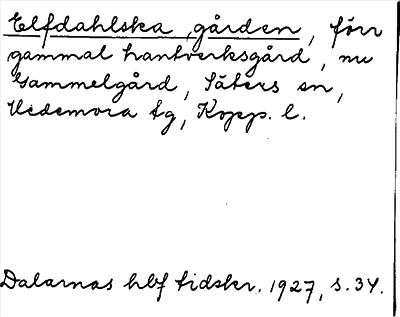 Elfdahlska gården, förr
gammal hantverksgård, nu
Gammelgård, Säters sn,
Hedemora tg, Kopp. l.
Dalarnas hbf tidskr. 1927, s. 34.